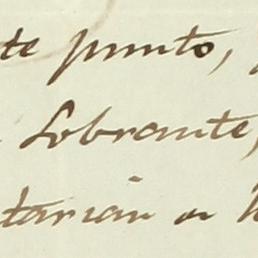 te punto,
Sobrante,
tarian a